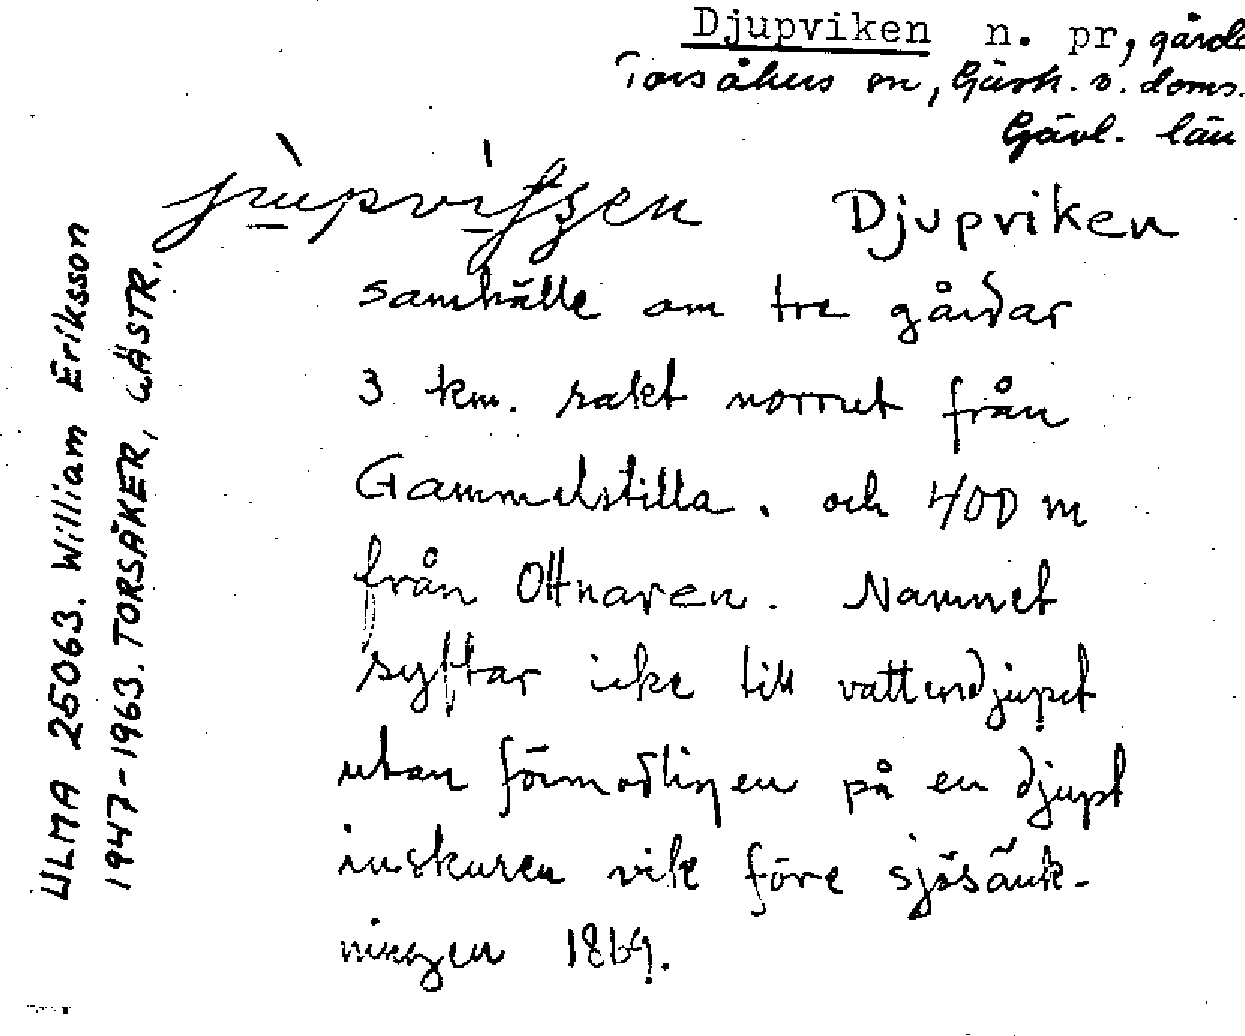 Djupviken n. pr, gårda
Torsåkers sn, Gästr. ö. doms.
Gävl. län
Djupviken
samhälle om tre gårdar
3 km. rakt norrut från
Gammelstilla. och 400 m
från Ottnaren. Namnet
syftar icke till vattendjupet
utan förmodligen på en djupt
inskuren vik före sjösänk-
ningen 1869.
ULMA 25063. William Eriksson
1947-1963. TORSÅKER, GÄSTR.